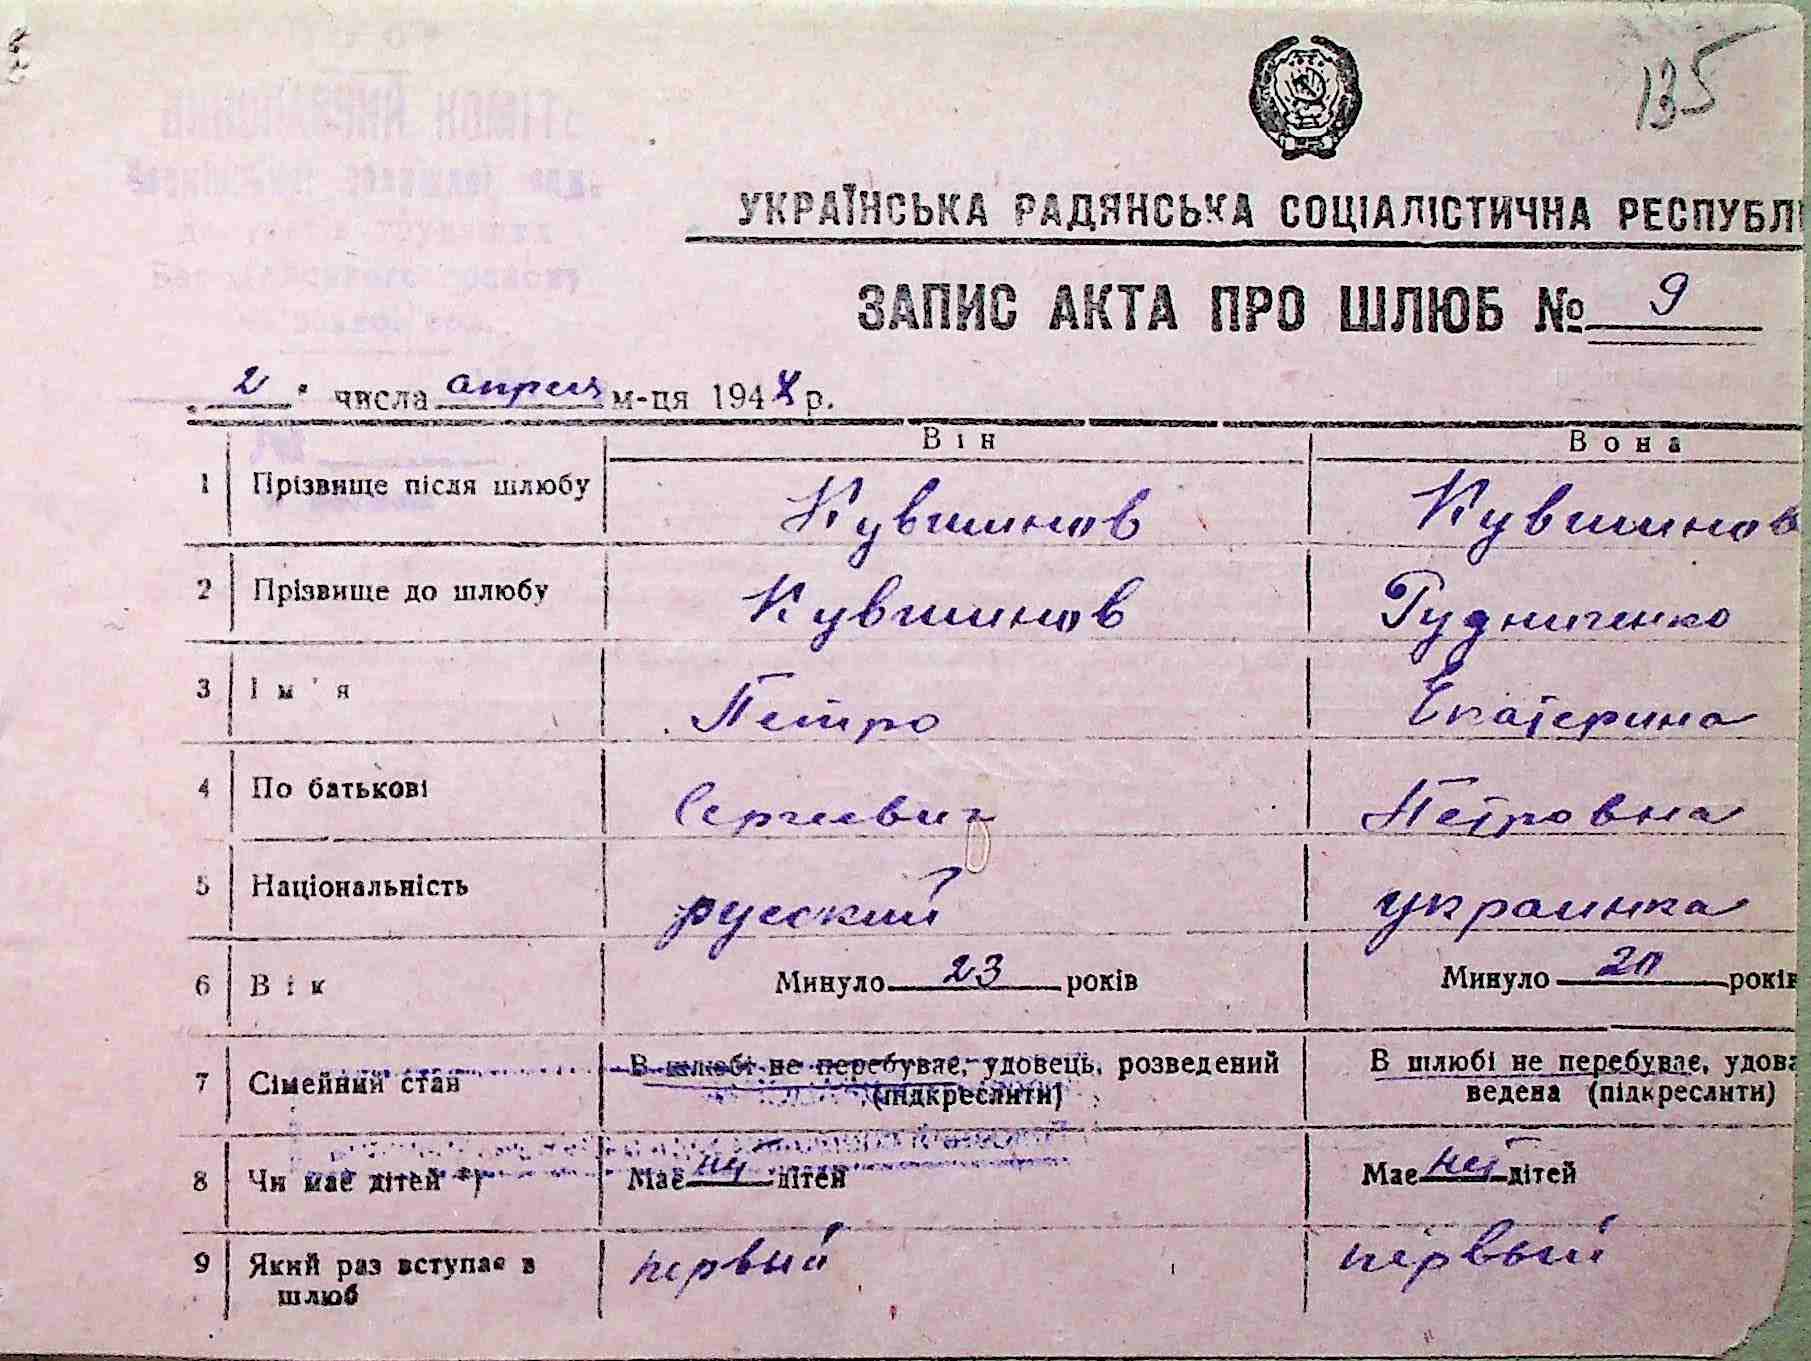 135
УКРАЇНСЬКА РАДЯНСЬКА СОЦІАЛІСТИЧНА РЕСПУБЛІ
ЗАПИС АКТА ПРО ШЛЮБ № 9
„2" числа апреля м-ця 194 р.
Він Вона
1 Прізвище після шлюбу Кувшинов Кувшинов
2 Прізвище до шлюбу Кувшинов Рудниченко
3 Ім'я Петро Екатерина
4 По батькові Сергеевич Петровна
5 Національність русский украинка
6 Вік Минуло 23 років Минуло 20 років
7 Сімейний стан В шлюбі не перебуває, удовець, розведений В шлюбі не перебуває, удова
(підкреслити) ведена (підкреслити)
8 Чи має дітей *) Має дітей Має нет дітей
9 Який раз вступає в первый первый
шлюб